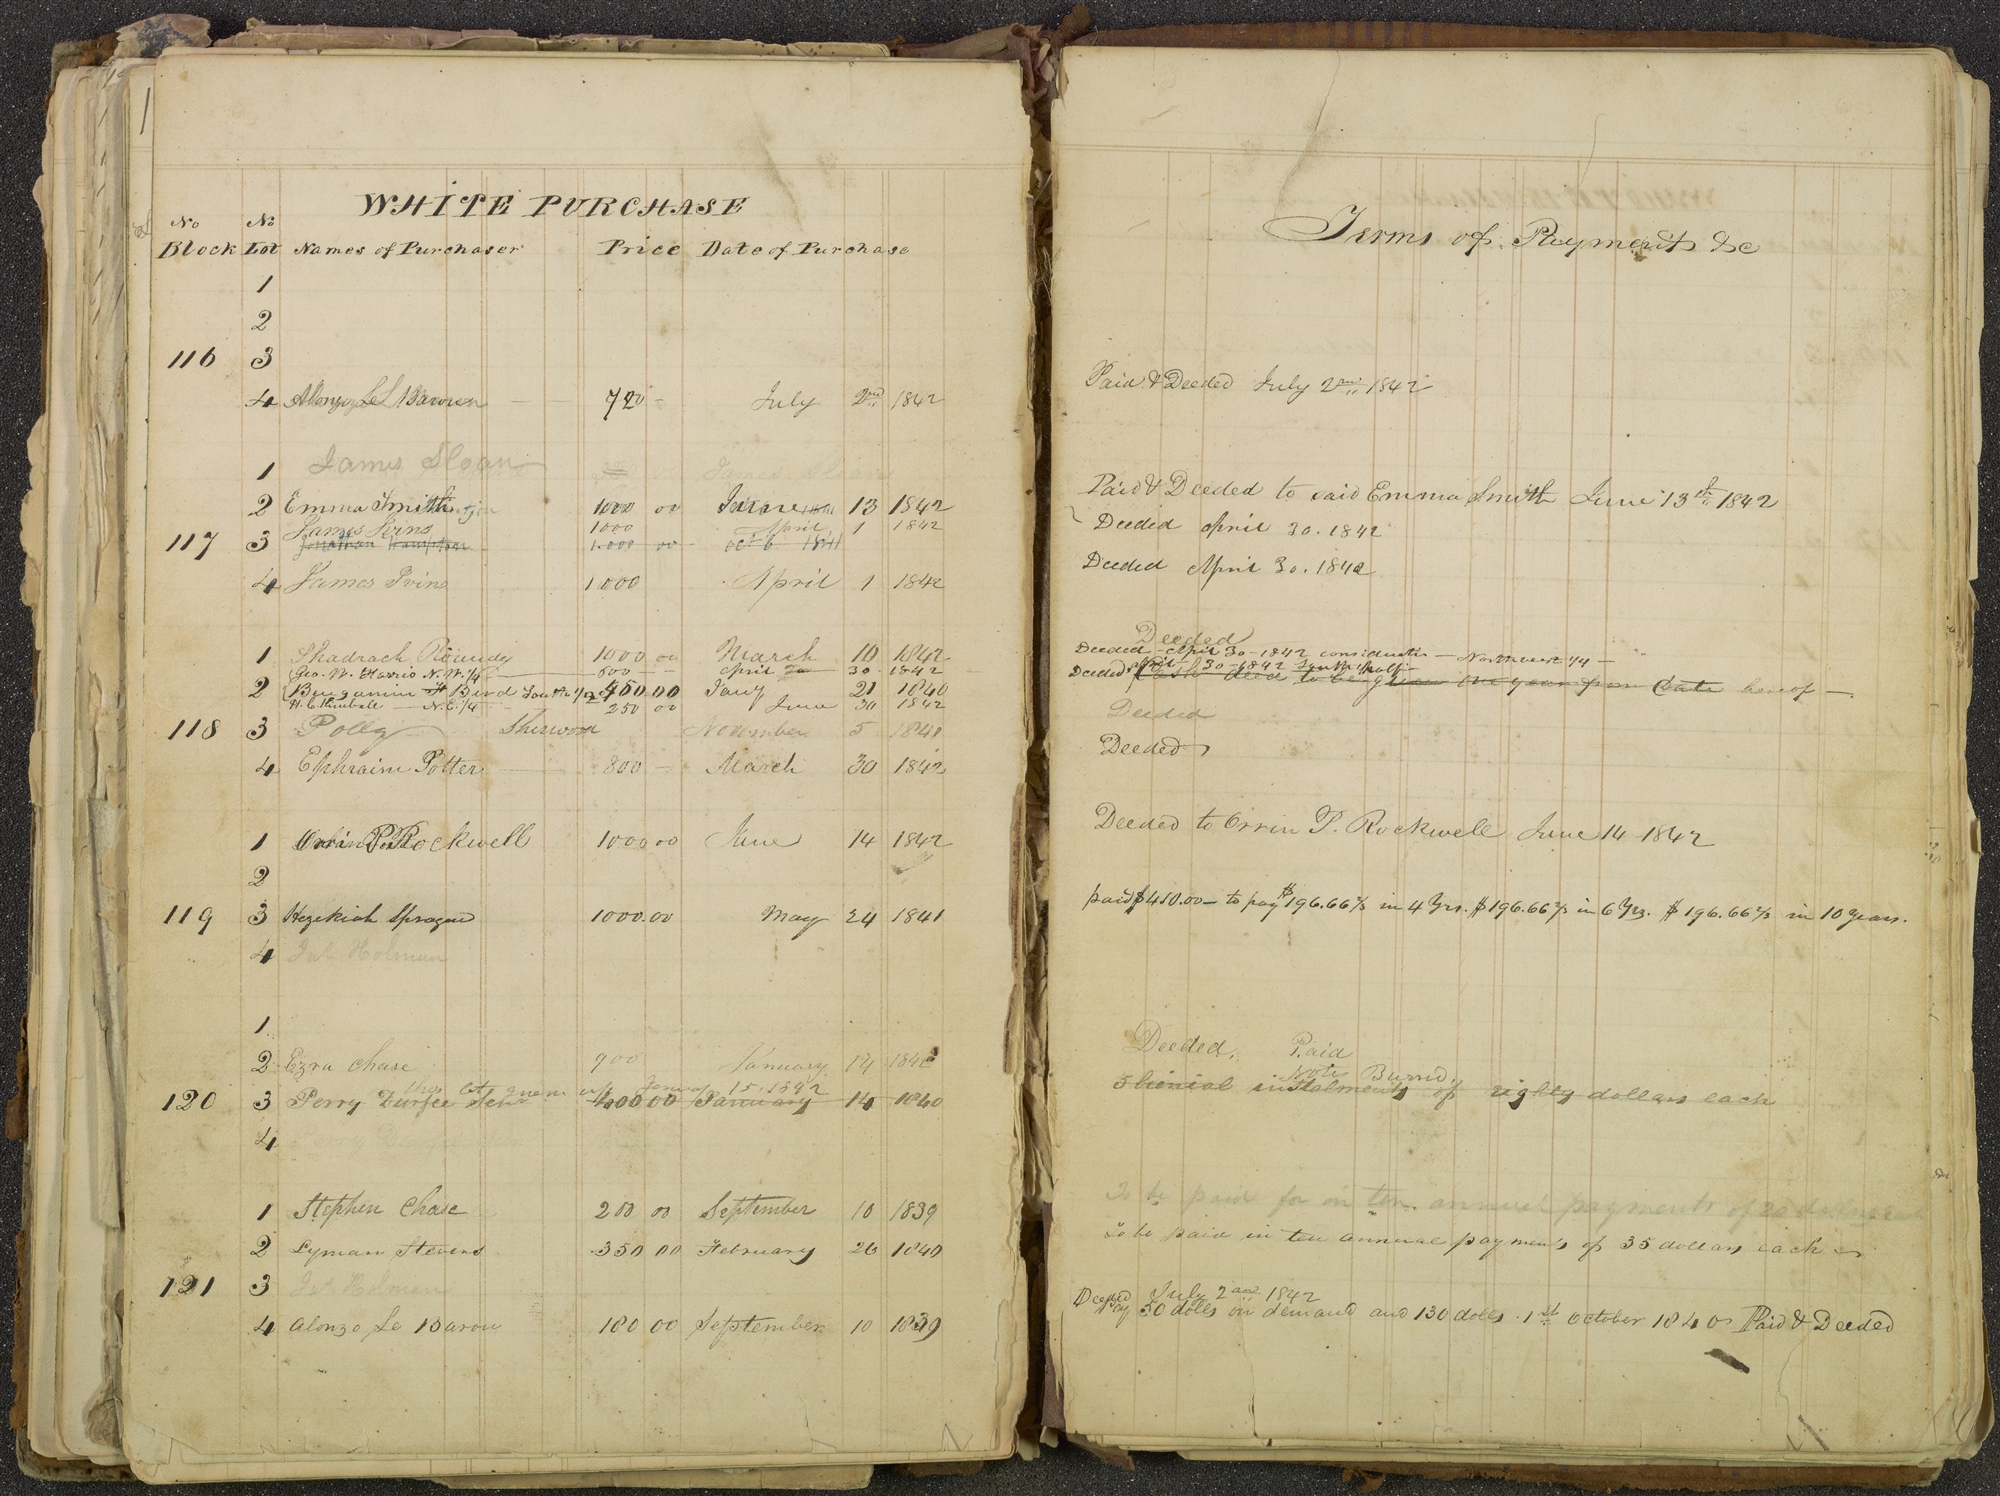 WHITE PURCHASE
No No
Block Lot Names of Purchaser Price Date of Purchase
1
2
116 3
4 Alonzo Le Baron 720 - July 2nd 1842
1 James Sloan
2 Emma Smith 1000 00 June 13 1842
James Ivins 1000 April 1 1842
117 3 Jonathan Hampton 1.000 00 oct 6 1841
4 James Ivins 1000 April 1 1842
1 Shadrach Roundy 1000 00 March 10 1842
Geo. W. Harris N.W. 1/4 600 April 30 1842
2 Bengamin Bird South 1/2 450.00 Jany 21 1840
H. C. Kimball N.E. 1/4 250 00 June 30 1842
118 3 Polly Sherwood November 5 1841
4 Ephraim Potter 800 - March 30 1842
1 Orrin P. Rockwell 1000 00 June 14 1842
2
119 3 Hezekiah Sprague 1000.00 May 24 1841
4 Holman
1
2 Ezra Chase 900 January 14 1842
this lot given up January 15. 1842
120 3 Perry Durfee 400 00 January 14 1840
4
1 Stephen Chase 200 00 September 10 1839
2 Lyman Stevens 350 00 February 26 1840
121 3 Holman
4 Alonzo Le Baron 180 00 September 10 1839
Terms of Payments &c
Paid & Deeded July 2nd 1842
Paid & Deeded to said Emma Smith June 13th 1842
Deeded April 30. 1842
Deeded April 30. 1842
Deeded
Deeded - April 30 - 1842 consideration - Northwest 1/4 -
Deeded April 30 - 1842 South half -
Cash deed to be given one year from date hereof -
Deeded
Deeded
Deeded to Orrin P. Rockwell June 14 1842
paid $410.00 - to pay $196.66 2/3 in 4 Yrs. $196.66 2/3 in 6 Yrs. $196.66 2/3 in 10 years.
Deeded. Paid
Note Burnd.
5 bienial instalments of eighty dollars each
To be paid for in ten annual payments of 20 dollars each
To be paid in ten annual payments of 35 dollars each
Deeded July 2nd 1842
Pay 50 dolls on demand and 130 dolls. 1st October 1840 Paid & Deeded